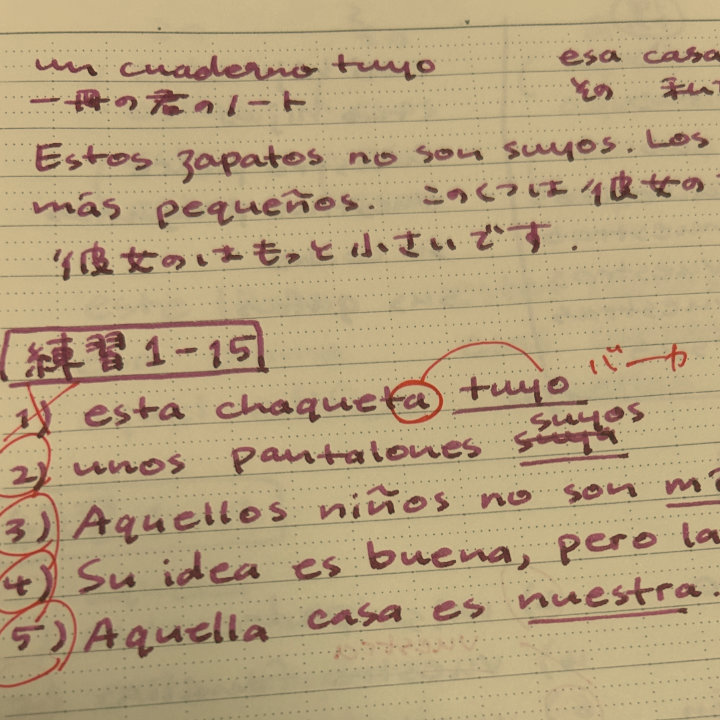 un cuaderno tuyo esa casa
一冊の君のノート その
Estos zapatos no son suyos. Los
más pequeños. このくつは彼女の
彼女のはもっと小さいです.
練習 1-15
1) esta chaqueta tuyo バーカ
suyos
2) unos pantalones
3) Aquellos niños no son
4) Su idea es buena, pero la
5) Aquella casa es nuestra.